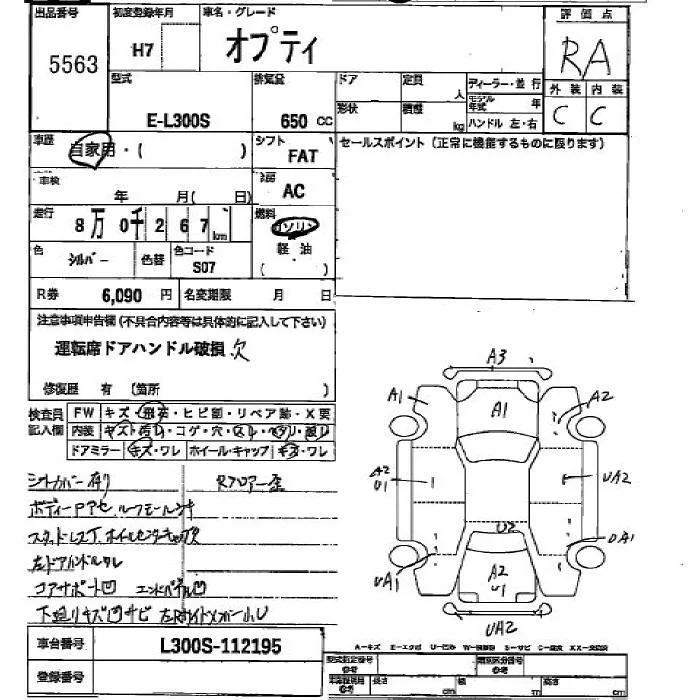 出品番号 初度登録年月 車名・グレード 評価点
5563 H7 オプティ RA
型式 排気量 ドア 定員 人 ディーラー・並行 外装 内装
E-L300S 650 CC 形状 積載 kg モデル年式 年 C C
ハンドル 左・右
車歴 自家用・( ) シフト FAT セールスポイント(正常に機能するものに限ります)
車検 年 月( 日) 冷房 AC
走行 8万0千267km 燃料 ガソリン 軽・油 ( )
色 シルバー 色替 色コード S07
R券 6,090 円 名変期限 月 日
注意事項申告欄(不具合内容等は具体的に記入して下さい)
運転席ドアハンドル破損 欠
修復歴 有 (箇所 )
検査員記入欄 FW キズ・飛石・ヒビ割・リペア跡・X要
内装 キズ・汚れ・コゲ・穴・スレ・ヘタリ・破レ
ドアミラー キズ・ワレ ホイール・キャップ キズ・ワレ
シートカバー有り Rフロアー歪
ボディーPアセ
左ドアハンドルワレ
コアサポート凹 エンドパネル凹
下廻りキズ凹サビ
A3
A1 A1 A2
A2 U1 UA2
U2
UA1 A2 U1 UA1
UA2
A-キズ E-エクボ U-凹み S-サビ
車台番号 L300S-112195
登録番号
型式指定番号 参考 類別区分番号 参考
長さ cm 幅 cm 高さ cm